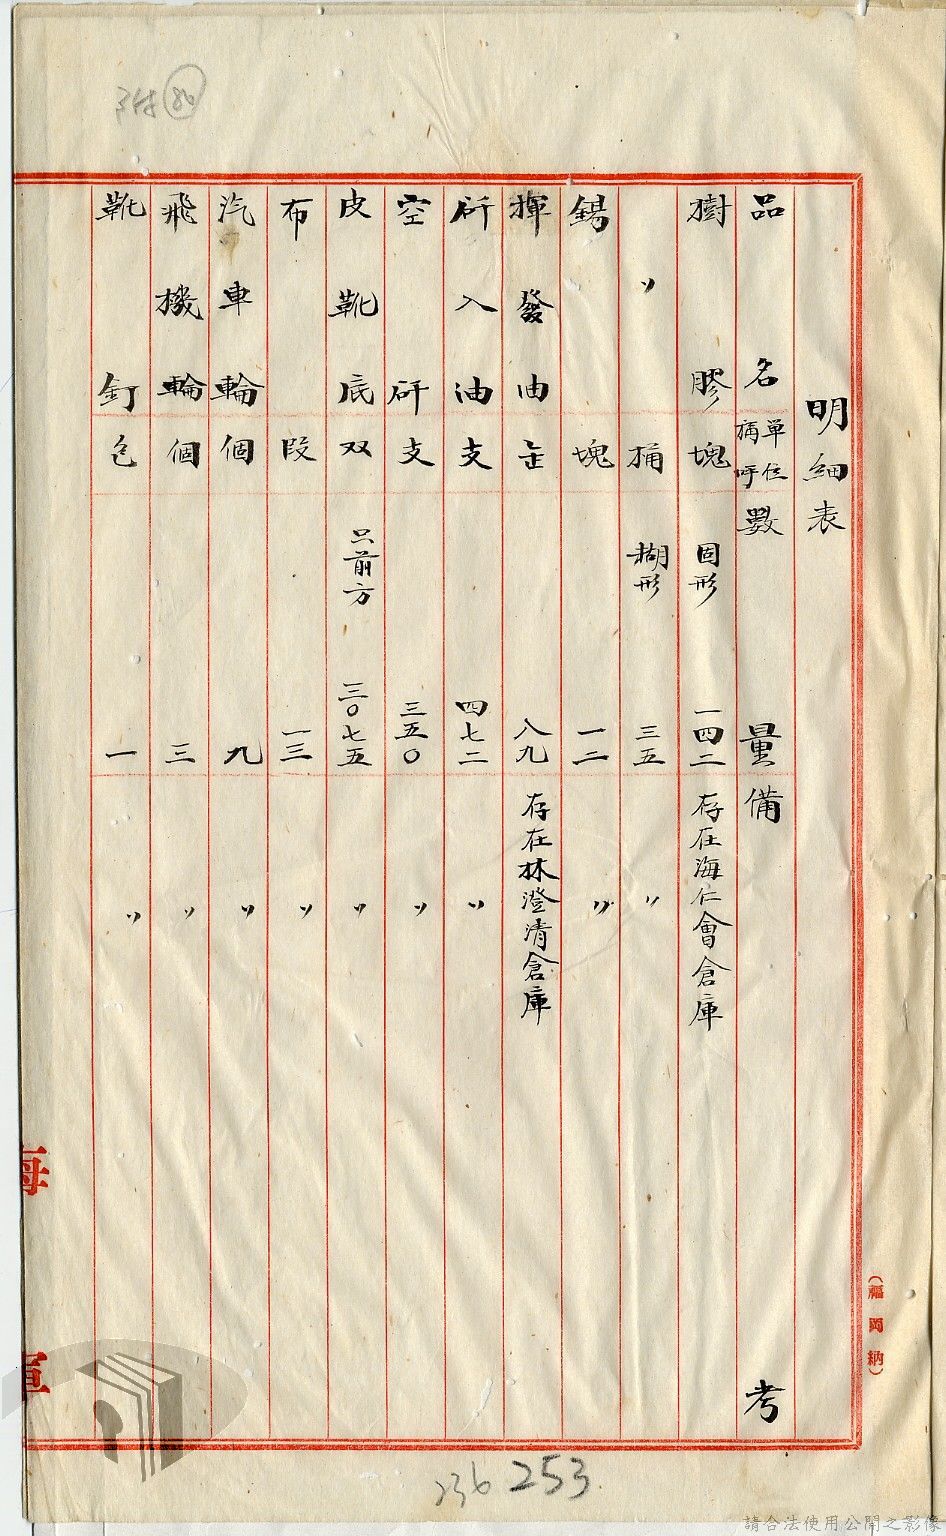 附80
明細表
品名 單位稱呼 數量 備考
樹膠 塊 固形 一四二 存在海仁會倉庫
〃 桶 糊形 三五 〃
錫 塊 一二 〃
揮發油 缶 八九 存在林澄清倉庫
矸入油 支 四七二 〃
空矸 支 三五〇 〃
皮靴底 双 只前方 三〇七五 〃
布 段 一三 〃
汽車輪 個 九 〃
飛機輪 個 三 〃
靴釘 包 一 〃
海軍
(福岡納)
236 253
請合法使用公開之影像